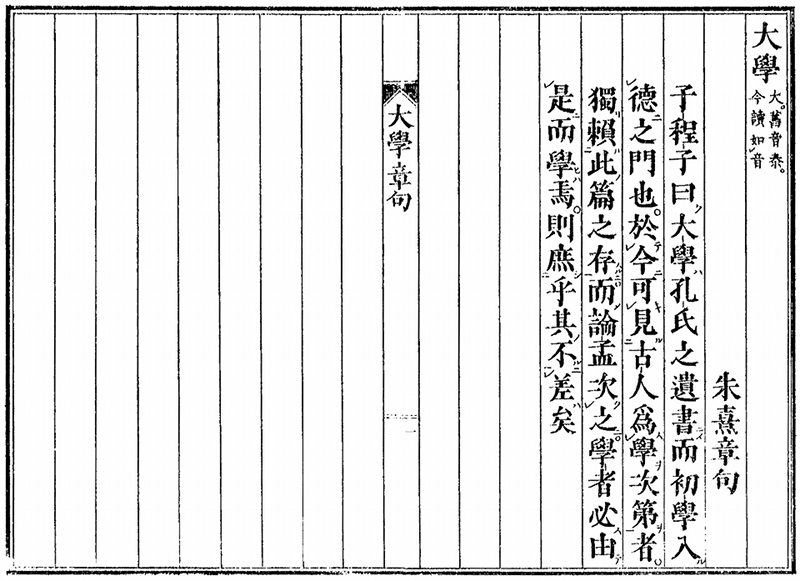 大學 大舊音泰。
今讀如音
朱熹章句
子程子曰大學孔氏之遺書而初學入
德之門也。於今可見古人爲學次第者。
獨賴此篇之存而論孟次之。學者必由
是而學焉。則庶乎其不差矣
大學章句
一